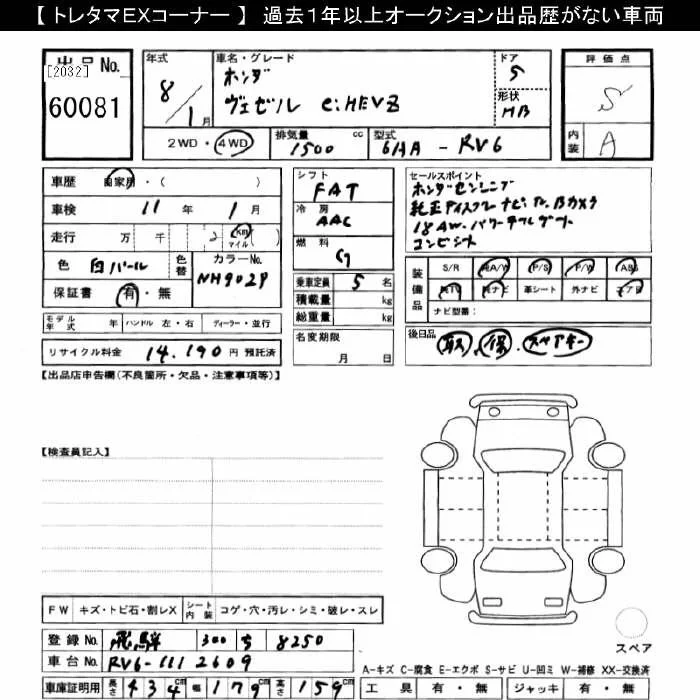 【 トレタマEXコーナー 】 過去1年以上オークション出品歴がない車両
出品No.
[2032]
60081
年式
8/1月
車名・グレード
ホンダ
ヴェゼル e:HEVZ
ドア
5
形状
HB
評価点
S
内装
A
2WD・4WD
排気量
1500 cc
型式
6AA - RV6
車歴 自家用・( )
車検 11年 1月
走行 万 千 2 Km マイル ( )
色 白パール 色替
カラーNo.
NH902P
保証書 有・無
モデル年式 年 ハンドル 左・右 ディーラー・並行
リサイクル料金 14,190 円 預託済
シフト
FAT
冷房
AAC
燃料
G
乗車定員 5 名
積載量 kg
総重量 kg
名変期限
月 日
セールスポイント
ホンダセンシング
純正ディスプレイナビ・TV・Bカメラ
18AW・パワーテールゲート
コンビシート
装備品 S/R 純A/W P/S P/W ABS
純TV 純ナビ 革シート 外ナビ エアB
ナビ型番:
後日品 取 . 保 . スペアキー
【出品店申告欄(不良箇所・欠品・注意事項等)】
【検査員記入】
FW キズ・トビ石・割レX シート内装 コゲ・穴・汚レ・シミ・破レ・スレ
登録No. 飛騨 300 8250
車台No. RV6-1112609
車庫証明用 長さ 434cm 幅 179cm 高さ 159cm
スペア
A-キズ C-腐食 E-エクボ S-サビ U-凹ミ W-補修 XX-交換済
工具 有・無 ジャッキ 有・無